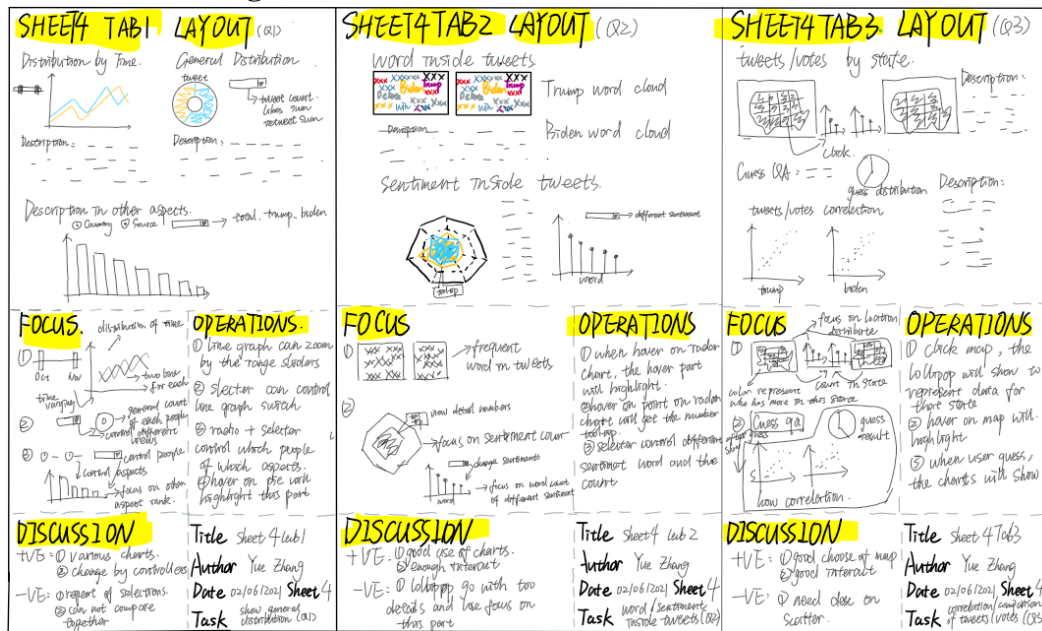 SHEET4 TAB1 LAYOUT (Q1)
Distribution by Time.
General Distribution
tweet
tweet count
likes sum
retweet sum
Description:
Description:
Description in other aspects.
Country
Source
total, trump, biden
FOCUS.
distribution of time
①
Oct
Nov
two line
for each
time
varying
②
general count
of each people
control different
views
③
control people
control aspects
focus on other
aspect rank.
OPERATIONS.
① line graph can zoom
by the range sliders
② slecter can control
line graph switch
③ radio + selector
control which people
of which aspects.
④ hover on pie will
highlight this part
DISCUSSION
+VE: ① various charts.
② change by controllers
-VE: ① repeat of selections.
② can not compare
together
Title Sheet 4 tab1
Author Yue Zhang
Date 02/06/2021 Sheet 4
Task show general
distribution (Q1)
SHEET4 TAB2 LAYOUT (Q2)
word inside tweets.
Biden
Trump
Trump word cloud
Description
Biden word cloud
Sentiment inside tweets.
different sentiment
tooltop
word
FOCUS
①
frequent
word in tweets
②
view detail numbers
focus on sentiment
change sentiments
focus on word count
of different sentiment
word
OPERATIONS
① when hover on radar
chart, the hover part
will highlight.
② hover on point on radar
chart will get the number
tooltop.
③ selector control different
sentiment word and the
count
DISCUSSION
+VE: ① good use of charts.
② enough interact
-VE: ① lollipop go with too
details and lose focus on
this part
Title Sheet 4 tab 2
Author Yue Zhang
Date 02/06/2021 Sheet 4
Task word / sentiments
inside tweets (Q2)
SHEET4 TAB3 LAYOUT (Q3)
tweets/votes by state.
Description:
click
Guess QA:
guess distribution
Description:
tweets/votes correlation
trump
biden
FOCUS
focus on location
①
color represent
who has more in this state
count in state
② Guess qa
guess
result
after guess
show
how correlation.
OPERATIONS
① click map, the
lollipop will show to
represent data for
that state
② hover on map will
highlight
③ when user guess,
the charts will show
DISCUSSION
+VE: ① good choose of map
② good interact
-VE: ① need desc on
scatter.
Title Sheet 4 Tab3
Author Yue Zhang
Date 02/06/2021 Sheet 4
Task correlation/comparison
of tweets/votes (Q3)